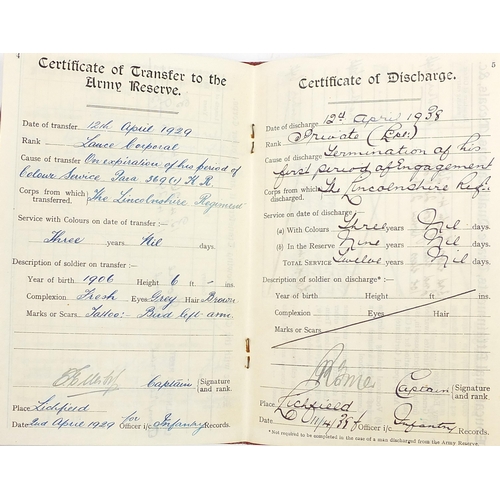 4
Certificate of Transfer to the
Army Reserve.
Date of transfer 12th April 1929
Rank Lance Corporal
Cause of transfer On expiration of his period of
Colour Service Para 369(1) K.R.
Corps from which transferred. The Lincolnshire Regiment
Service with Colours on date of transfer:—
Three years. Nil days.
Description of soldier on transfer:—
Year of birth 1906 Height 6 ft - ins.
Complexion Fresh Eyes Grey Hair Brown
Marks or Scars Tattoo:- Bird left arm.
Captain Signature and rank.
Place Lichfield
Date 2nd April 1929 for Officer i/c Infantry Records.
5
Certificate of Discharge.
Date of discharge 12th April 1938
Rank Private
Cause of discharge Termination of his
first period of Engagement
Corps from which discharged. The Lincolnshire Regt.
Service on date of discharge:—
(a) With Colours Three years Nil days.
(b) In the Reserve Nine years Nil days.
TOTAL SERVICE Twelve years Nil days.
Description of soldier on discharge*:—
Year of birth Height ft. ins.
Complexion Eyes Hair
Marks or Scars
Captain Signature and rank.
Place Lichfield
Date 11/4/38 for Officer i/c Infantry Records.
*Not required to be completed in the case of a man discharged from the Army Reserve.